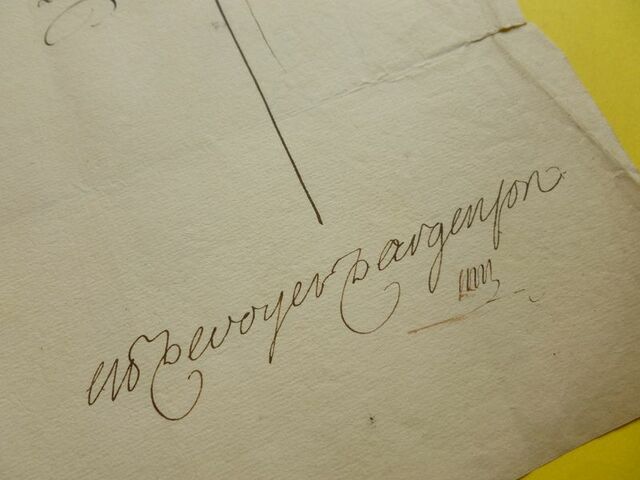 de voyer d'argenson